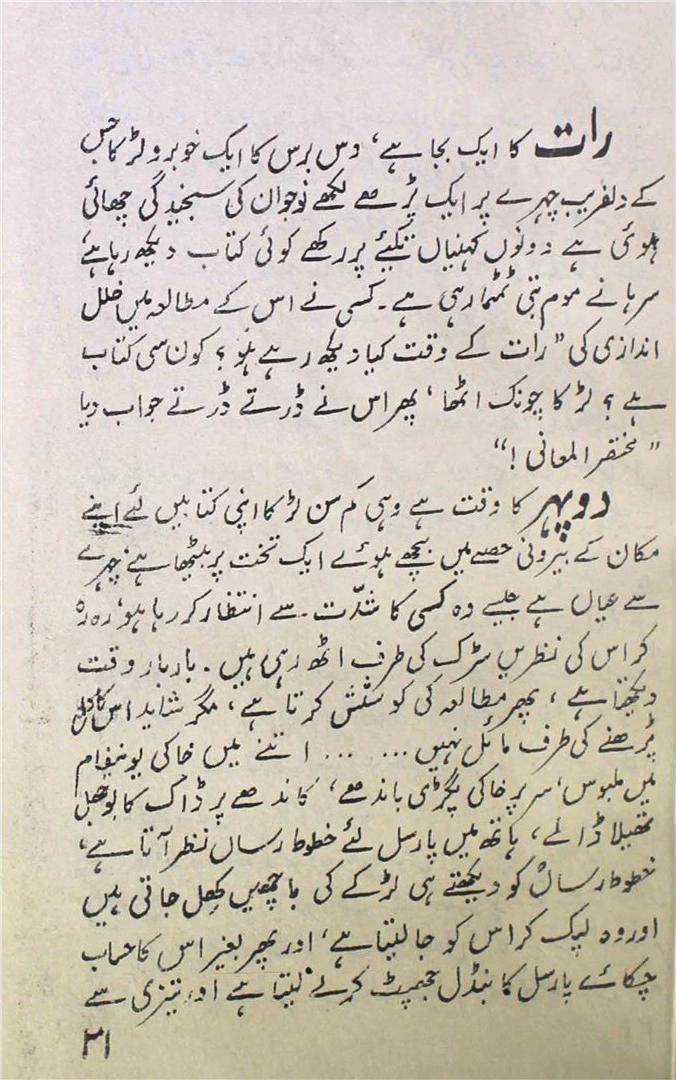 رات کا ایک بجا ہے، دس برس کا ایک خوبرو لڑکا جس
کے دلفریب چہرے پر ایک پڑھے لکھے نوجوان کی سنجیدگی چھائی
ہوئی ہے دونوں کہنیاں تکیئے پر رکھے کوئی کتاب دیکھ رہا ہے
سرہانے موم بتی ٹمٹما رہی ہے۔ کسی نے اس کے مطالعہ میں خلل
اندازی کی ”رات کے وقت کیا دیکھ رہے ہو؟ کون سی کتاب
ہے؟ لڑکا چونک اٹھا، پھر اس نے ڈرتے ڈرتے جواب دیا
”مختصر المعانی!“
دوپہر کا وقت ہے وہی کم سن لڑکا اپنی کتابیں لئے اپنے
مکان کے بیرونی حصے میں بچھے ہوئے ایک تخت پر بیٹھا ہے، چہرے
سے عیاں ہے جیسے وہ کسی کا شدّت سے انتظار کر رہا ہو، رہ رہ
کر اس کی نظریں سڑک کی طرف اٹھ رہی ہیں۔ بار بار وقت
دیکھتا ہے، پھر مطالعہ کی کوشش کرتا ہے، مگر شاید اس کا دل
پڑھنے کی طرف مائل نہیں... ... اتنے میں خاکی یونیفام
میں ملبوس، سر پر خاکی پگڑی باندھے، کاندھے پر ڈاک کا بوجھل
تھیلا ڈالے، ہاتھ میں پارسل لئے خطوط رساں نظر آتا ہے،
خطوط رساں کو دیکھتے ہی لڑکے کی باچھیں کھل جاتی ہیں
اور وہ لپک کر اس کو جا لیتا ہے، اور پھر بغیر اس کا حساب
چکائے پارسل کا بنڈل جھپٹ کر لے لیتا ہے اور تیزی سے
۳۱